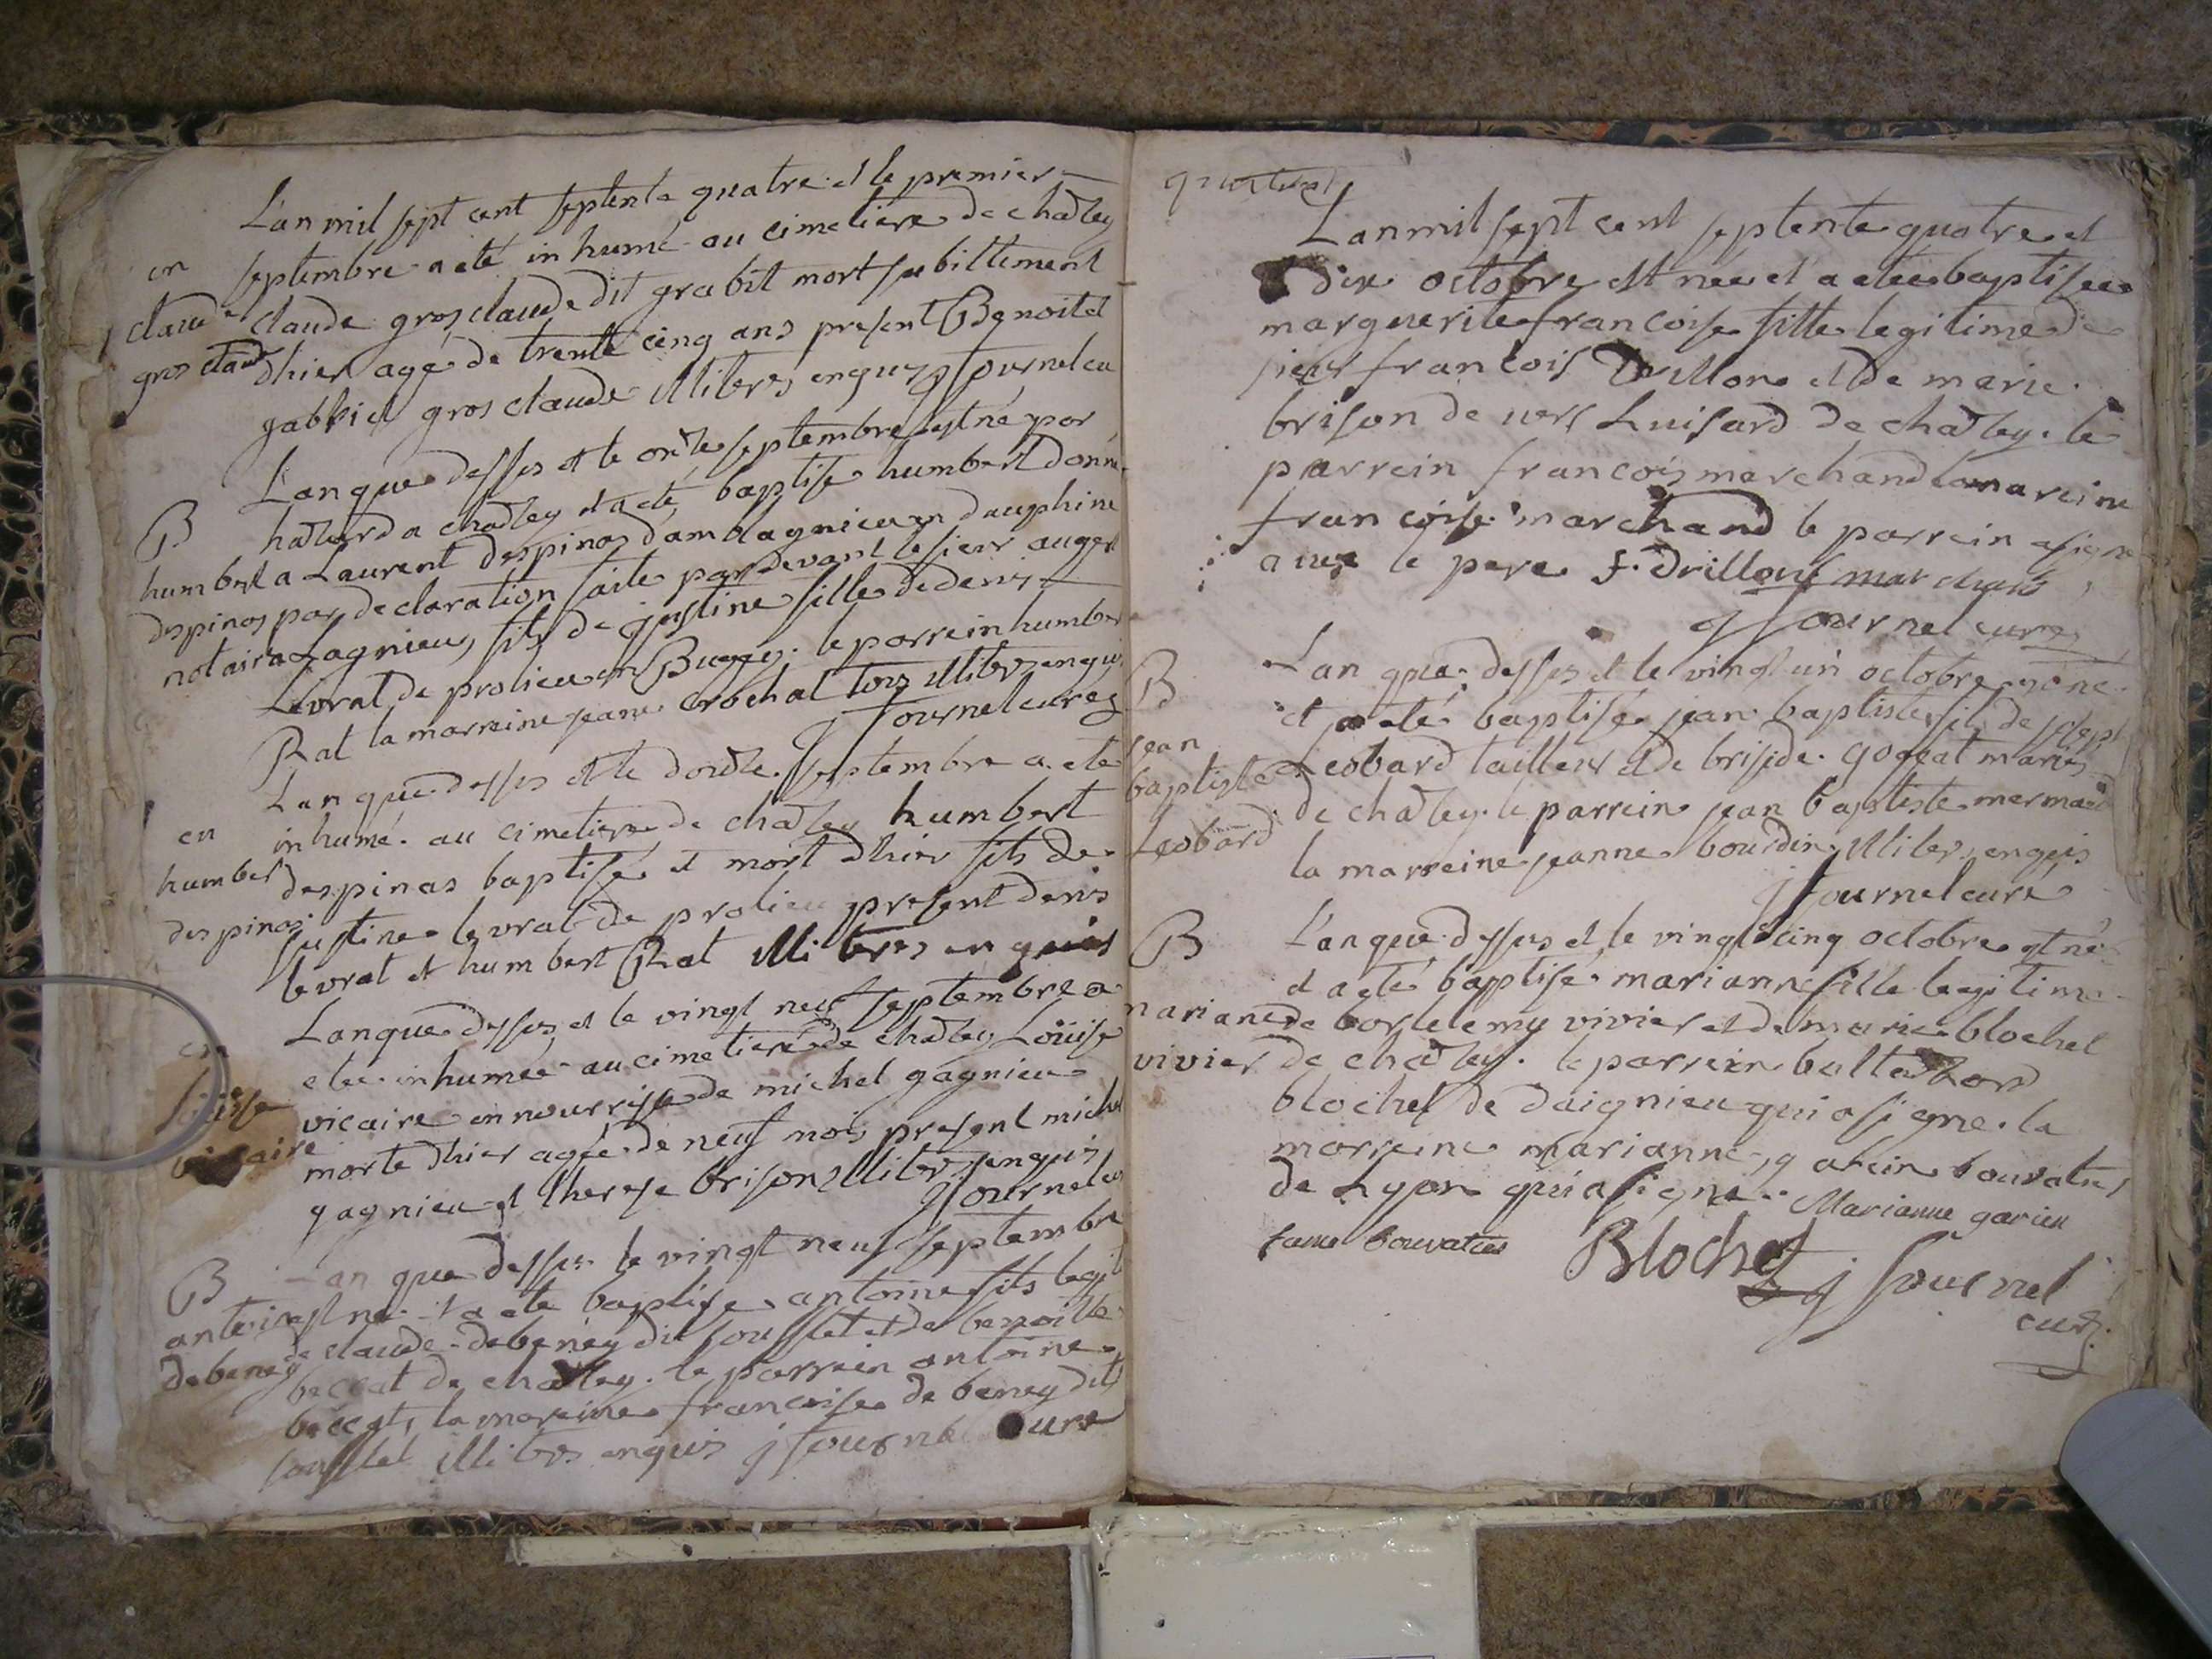 L'an mil sept cent septente quatre et le premier
en septembre a eté inhumé au cimetiere de chaZey
claude claude grosclaude dit grabit mort subittement
gros claude dhier agé de trente cinq ans present Benoit et
gabriel gros claude illitérés enquis j fournel cu
L'an que dessus et le onze septembre est né par
B hazard a chaZey et a eté baptisé humbert donné
humbert a Laurent despinas d'amblagnieu en dauphiné
despinas par declaration faite pardevant le sieur auger
notaire a Lagnieu, fils de justine fille de denis
Levrat de prolieu en Bugey. le parrein humbert
Rat la marreine jeane crochat tous illiterés enquis
j fournel curéz
L'an que dessus et le douze septembre a eté
en inhumé au cimetiere de chaZey humbert
humbert despinas baptisé et mort dhier fils de
despinas justine levrat de prolieu present denis
levrat et humbert Rat illiterés enquis
L'an que dessus et le vingt neuf septembre a
en etee inhumée au cimetiere de chaZey Loüise
loüise vicaire en nourrisse de michel gagnieu
vicaire morte dhier agée de neuf mois present michel
gagnieu et therese brison illiterés enquis
j fournel cu
B L'an que dessus le vingt neuf septembre
antoine est né et a eté baptisé antoine fils legit
debeney de claude debeney dit soufflet et de benoitte
beccat de chaZey. le parrein antoine
beccat, la mareine francoise de beney dit
soufflet illiterés enquis j fournel curé
L'an mil sept cent septente quatre et
dix octobre est née et a eteé baptisee
marguerite francoise fille legitime de
sieur francois Drillon et de marie
brison de vers huisard de chaZey. le
parrein francois marchand la mareine
francoise marchand le parrein a signé
avec le pere f. Drillon marchand
j fournel curé
B L'an que dessus et le vingt un octobre est né
et a eté baptisé jean baptiste fils de joseph
jean Leobard tailleur et de briside goffat mariés
baptiste de chaZey. le parrein jean baptiste mermand
Leobard la marreine jeanne bourdin illiterés enquis
j fournel curé
B L'an que dessus et le vingt cinq octobre est né
et a eté baptisé marianne fille legitime
mariane de bortelemy vivier et de marie blochet
vivier de chaZey. le parrein baltazard
blochet de daignieu qui a signé. la
marreine marianne garein bouvatier
de Lyon qui a signé. Marianne garien
fame bouvatier Blochet j fournel
curéz.